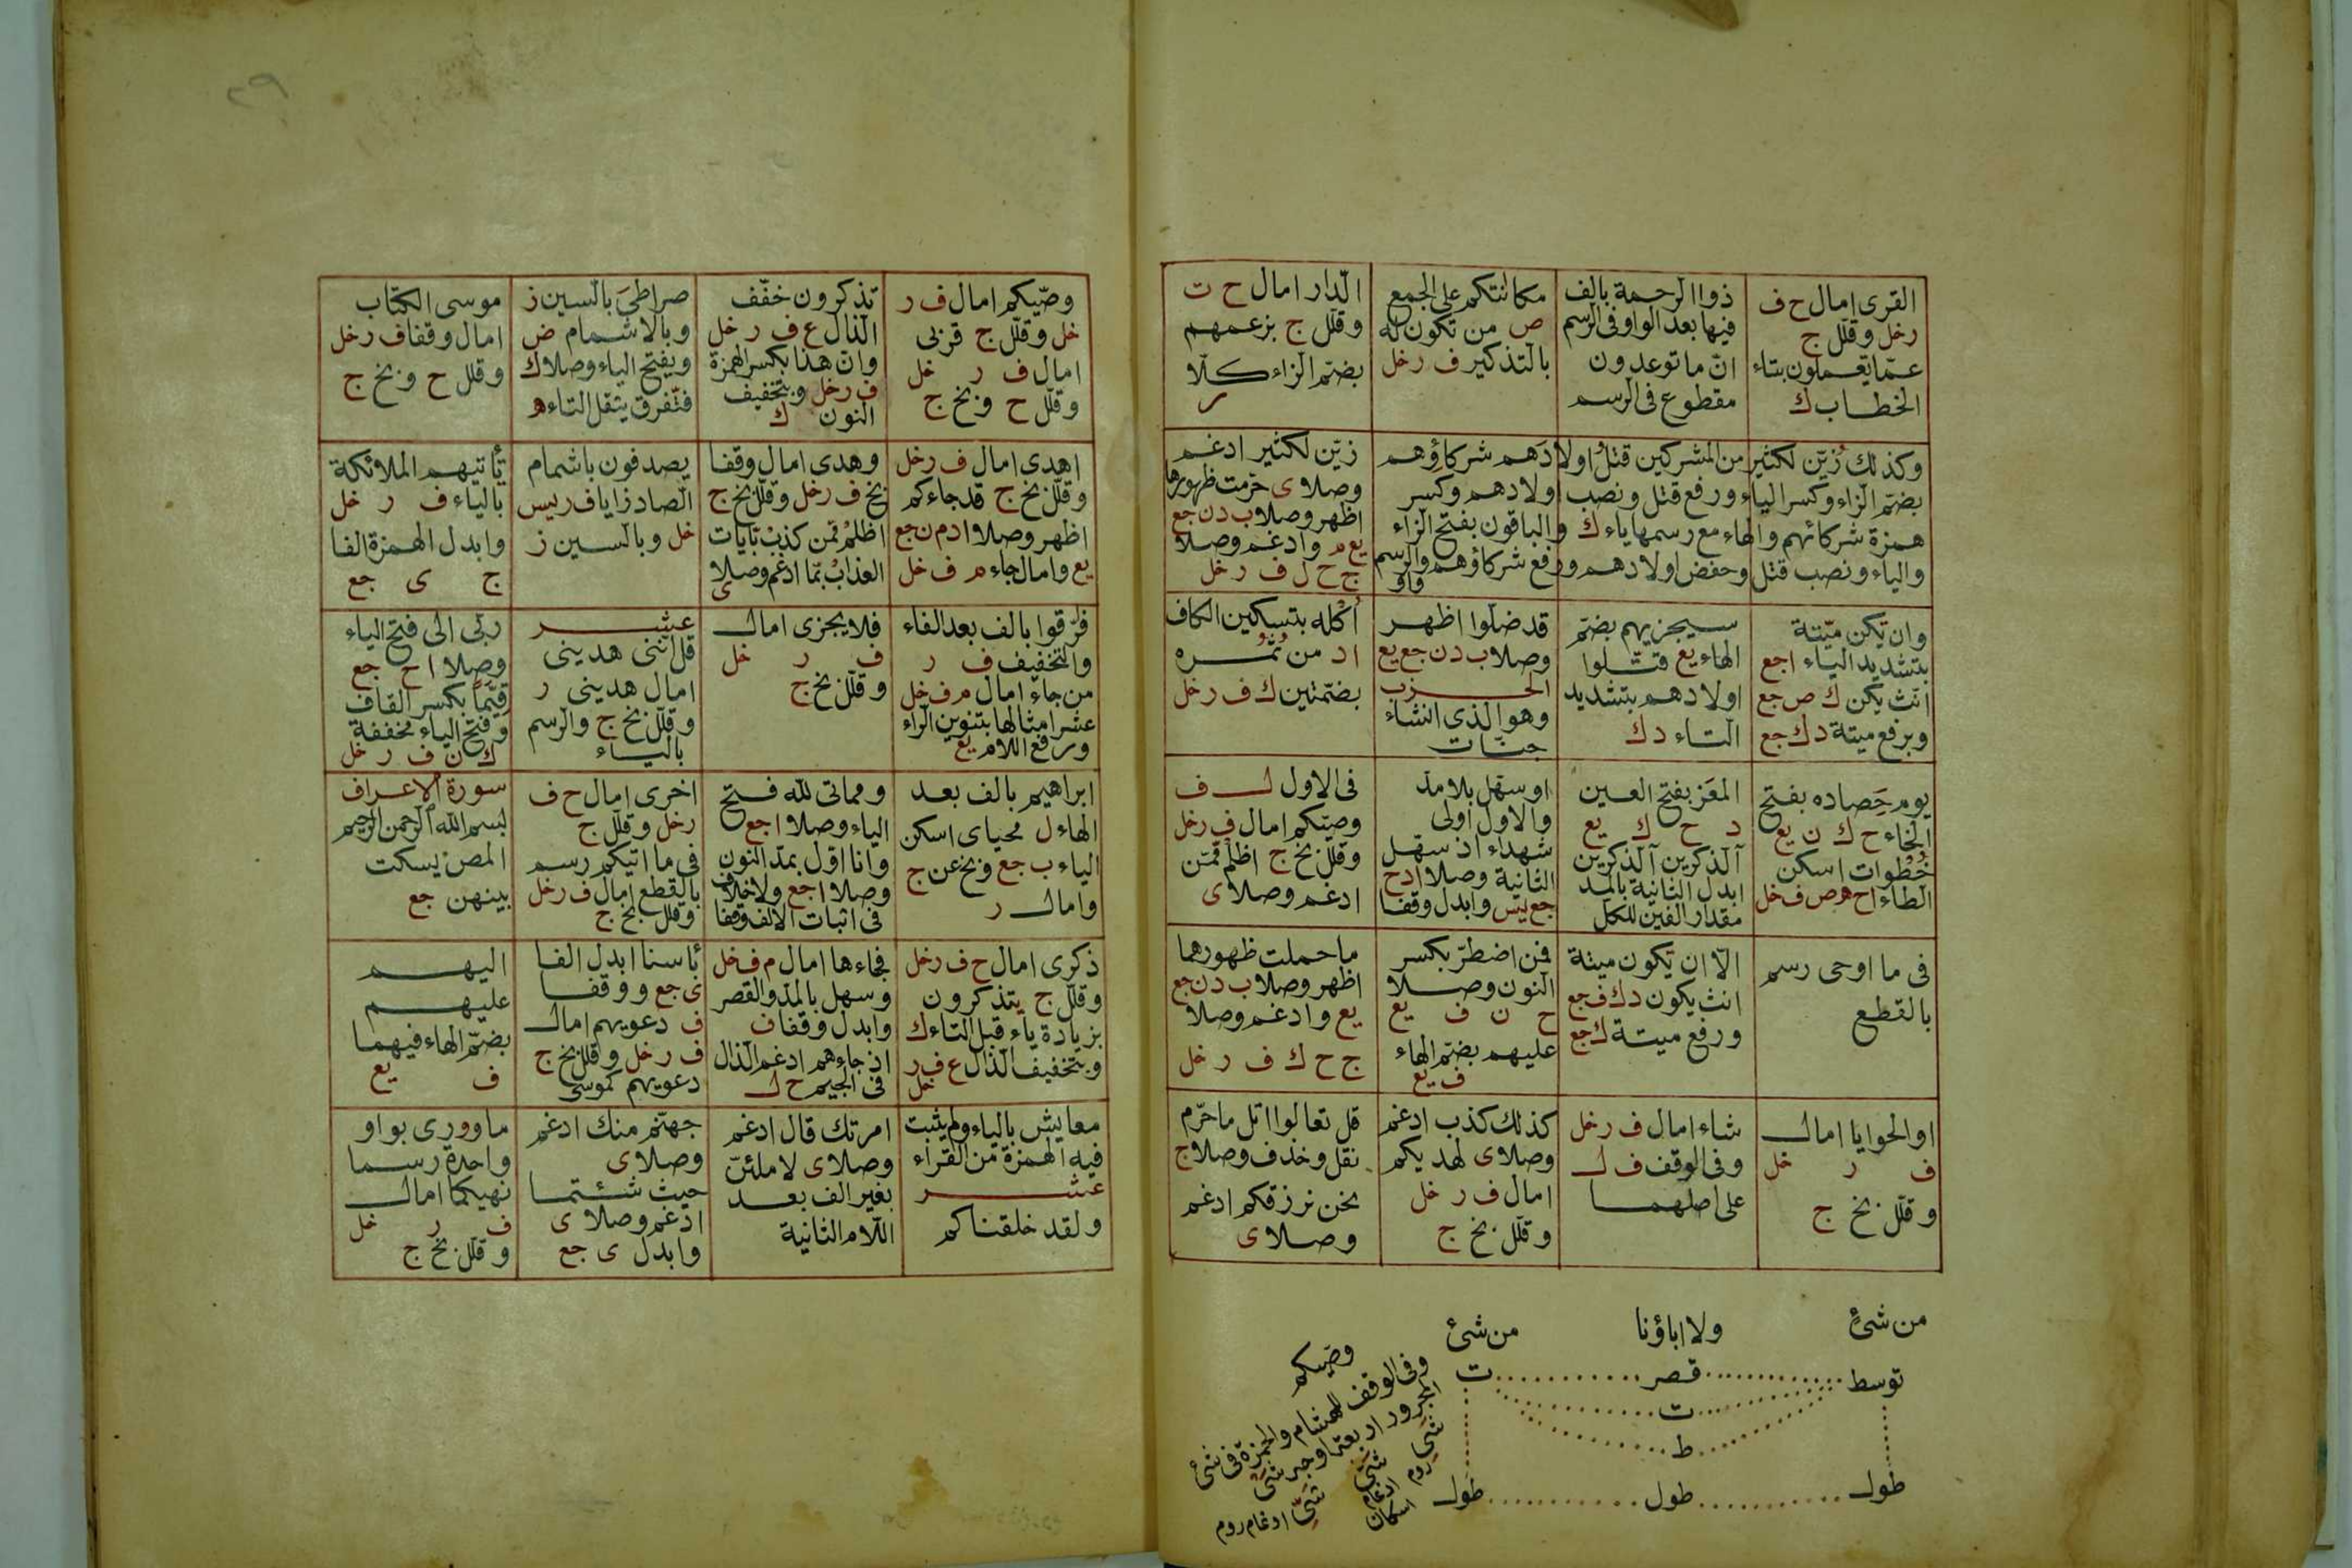 القرى امال ح ف
رخل وقلّل ج
عمّا يعملون بتاء
الخطاب ك
ذوا الرحمة بالف
فيها بعد الواو فى الرسم
انّ ما توعدون
مقطوع فى الرسم
مكانتكم على الجمع
ص من تكون له
بالتذكير ف رخل
الدّار امال ح ت
وقلّل ج بزعمهم
بضمّ الزاء كلّا
ر
وكذلك زيّن لكثير من المشركين قتل اولادهم شركاؤهم
بضمّ الزاء وكسر الياء ورفع قتل ونصب اولادهم وكسر
همزة شركائهم والهاء مع رسمها ياء ك والباقون بفتح الزاء
والياء ونصب قتل وحفض اولادهم ورفع شركاؤهم والرسم
واو
زيّن لكثير ادغم
وصلا ى حرّمت ظهورها
اظهر وصلا ب د ن جع
يع م وادغم وصلا
ج ح ل ف ر خل
وان يكن ميّتة
بتشديد الياء ا جع
انّث يكن ك ص جع
وبرفع ميتة د ك جع
سيجزيهم بضمّ
الهاء يع قتلوا
اولادهم بتشديد
التاء د ك
قد ضلّوا اظهر
وصلا ب د ن جع يع
الحزب
وهو الذى انشاء
جنّات
اُكْله بتسكين الكاف
ا د من ثُمُره
بضمّتين ك ف رخل
يوم حَصاده بفتح
الحاء ح ك ن يع
خُطْوات اسكن
الطاء ا ح ه ص ف خل
المعَز بفتح العين
د ح ك يع
آلذكرين آلذكرين
ابدل الثانية بالمد
مقدار الفين للكل
او سهّل بلا مدّ
والاول اولى
شهداء اذ سهّل
الثانية وصلا ا د ح
جع يس وابدل وقفا
فى الاول ل ف
وصّيكم امال ف رخل
وقلّل بخ ج اظلم ممّن
ادغم وصلا ى
فى ما اوحى رسم
بالقطع
الّا ان يكون ميتة
انث يكون د ك ف جع
ورفع ميتة ك جع
فمن اضطرّ بكسر
النون وصلا
ح ن ف يع
عليهم بضمّ الهاء
ف يع
ما حملت ظهورهما
اظهر وصلا ب د ن جع
يع وادغم وصلا
ج ح ك ف ر خل
او الحوايا امال
ف ر خل
وقلّل بخ ج
شاء امال ف رخل
وفى الوقف ف ل
على اصلهما
كذلك كذب ادغم
وصلا ى لهديكم
امال ف ر خل
وقلّل بخ ج
قل تعالوا اتل ما حرّم
نقل وحذف وصلا ج
نحن نرزقكم ادغم
وصلا ى
من شئٍ ولا اباؤنا من شئ
توسط قصر ت
ت
ط
طول طول طول
وصّيكم
وفى الوقف لهشام والحمزة فى شئ
شىّ ادغام روم
وصّيكم امال ف ر
خل وقلّل ج قربى
امال ف ر خل
وقلّل ح وبخ ج
تذكرون خفّف
الذال ع ف ر خل
وانّ هذا بكسر الهمزة
ف رخل وبتخفيف
النون ك
صراطىَ بالسين ز
وبالاشمام ض
وبفتح الياء وصلا ك
فتّفرق بثقل التاء ه
موسى الكتاب
امال وقفا ف رخل
وقلل ح وبخ ج
اهدى امال ف رخل
وقلّل بخ ج قد جاءكم
اظهر وصلا ا د م ن جع
يع وامال جاء م ف خل
وهدى امال وقفا
بخ ف رخل وقلّل بخ ج
اظلم ممّن كذب بّآيات
العذاب بّما ادغم وصلا
ى
يصدفون باشمام
الصاد زايا ف ر يس
خل وبالسين ز
تأتيهم الملائكة
بالياء ف ر خل
وابدل الهمزة الفا
ج ى جع
فرّقوا بالف بعد الفاء
والتخفيف ف ر
من جاء امال م ف خل
عشر امثالها بتنوين الراء
ورفع اللام يع
فلا يجزى امال
ف ر خل
وقلّل بخ ج
عشر
قل انّنى هدينى
امال هدينى ر
وقلّل بخ ج والرسم
بالياء
ربّى الى فتح الياء
وصلا ا ح جع
قيّمًا بكسر القاف
وفتح الياء مخففة
ك ن ف ر خل
ابراهيم بالف بعد
الهاء ل محياى اسكن
الياء ب جع وبخ عن ج
وامال ر
ومماتى لله فتح
الياء وصلا ا جع
وانا اوّل بمدّ النون
وصلا ا جع ولا خلاف
فى اثبات الالف وقفا
اخرى امال ح ف
رخل وقلّل ج
فى ما اتيكم رسم
بالقطع امال ف رخل
وقلل بخ ج
سورة الاعراف
بسم الله الرحمن الرحيم
المص يسكت
بينهن جع
ذكرى امال ح ف رخل
وقلّل ج يتذكرون
بزيادة ياء قبل التاء ك
وبتخفيف الذال ع ف ر
خل
فجاءها امال م ف خل
وسهل بالمدّ والقصر
وابدل وقفا ف
اذ جاءهم ادغم الذال
فى الجيم ح ل
بأسنا ابدل الفا
ى جع ووقفا
ف دعويهم امال
ف رخل وقلّل بخ ج
دعويهم كموسى
اليهم
عليهم
بضمّ الهاء فيهما
ف يع
معايش بالياء ولم يثبت
فيه الهمزة من القراء
عشر
ولقد خلقناكم
امرتك قال ادغم
وصلا ى لاملئنّ
بغير الف بعد
اللام الثانية
جهنّم منك ادغم
وصلا ى
حيث شئتما
ادغم وصلا ى
وابدل ى جع
ما وورى بواو
واحدة رسما
نهيكما امال
ف ر خل
وقلّل بخ ج